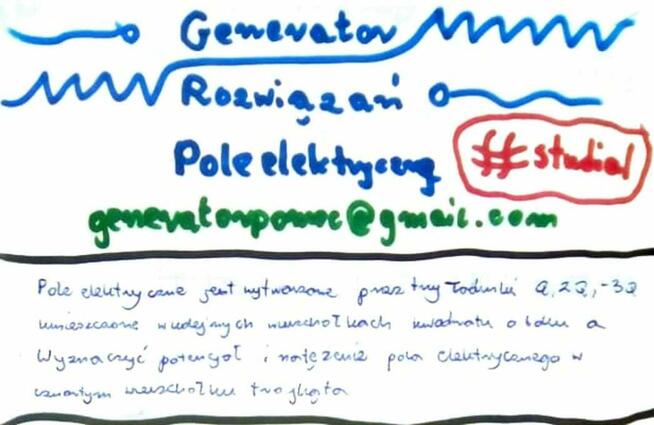 Generator
Rozwiązań
Pole elektryczne
#studia1
generatorpomoc@gmail.com
Pole elektryczne jest wytworzone przez trzy ładunki Q, 2Q, -3Q
umieszczone w kolejnych wierzchołkach kwadratu o boku a
Wyznaczyć potencjał i natężenie pola elektrycznego w
czwartym wierzchołku